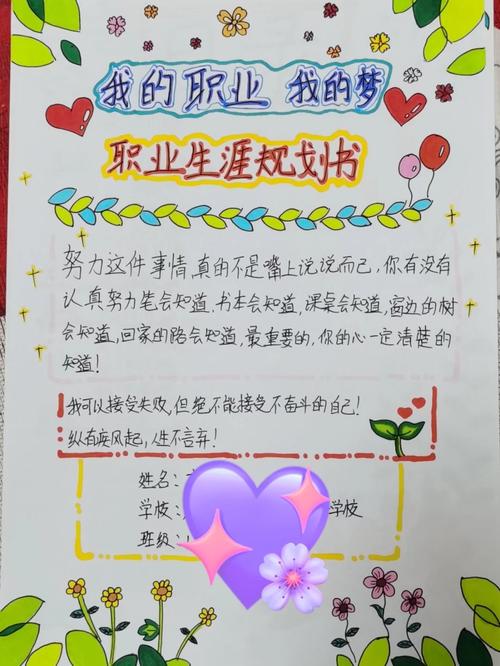 我的职业 我的梦
职业生涯规划书
努力这件事情,真的不是嘴上说说而已,你有没有
认真努力笔会知道,书本会知道,课桌会知道,窗边的树
会知道,回家的路会知道,最重要的,你的心一定清楚的
知道!
我可以接受失败,但绝不能接受不奋斗的自己!
纵有疾风起,人生不言弃!
姓名:
学校: 学校
班级: